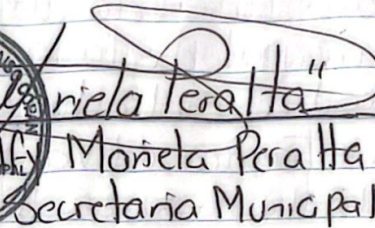 riela Peralta"
Mariela Peralta
Secretaria Municipal